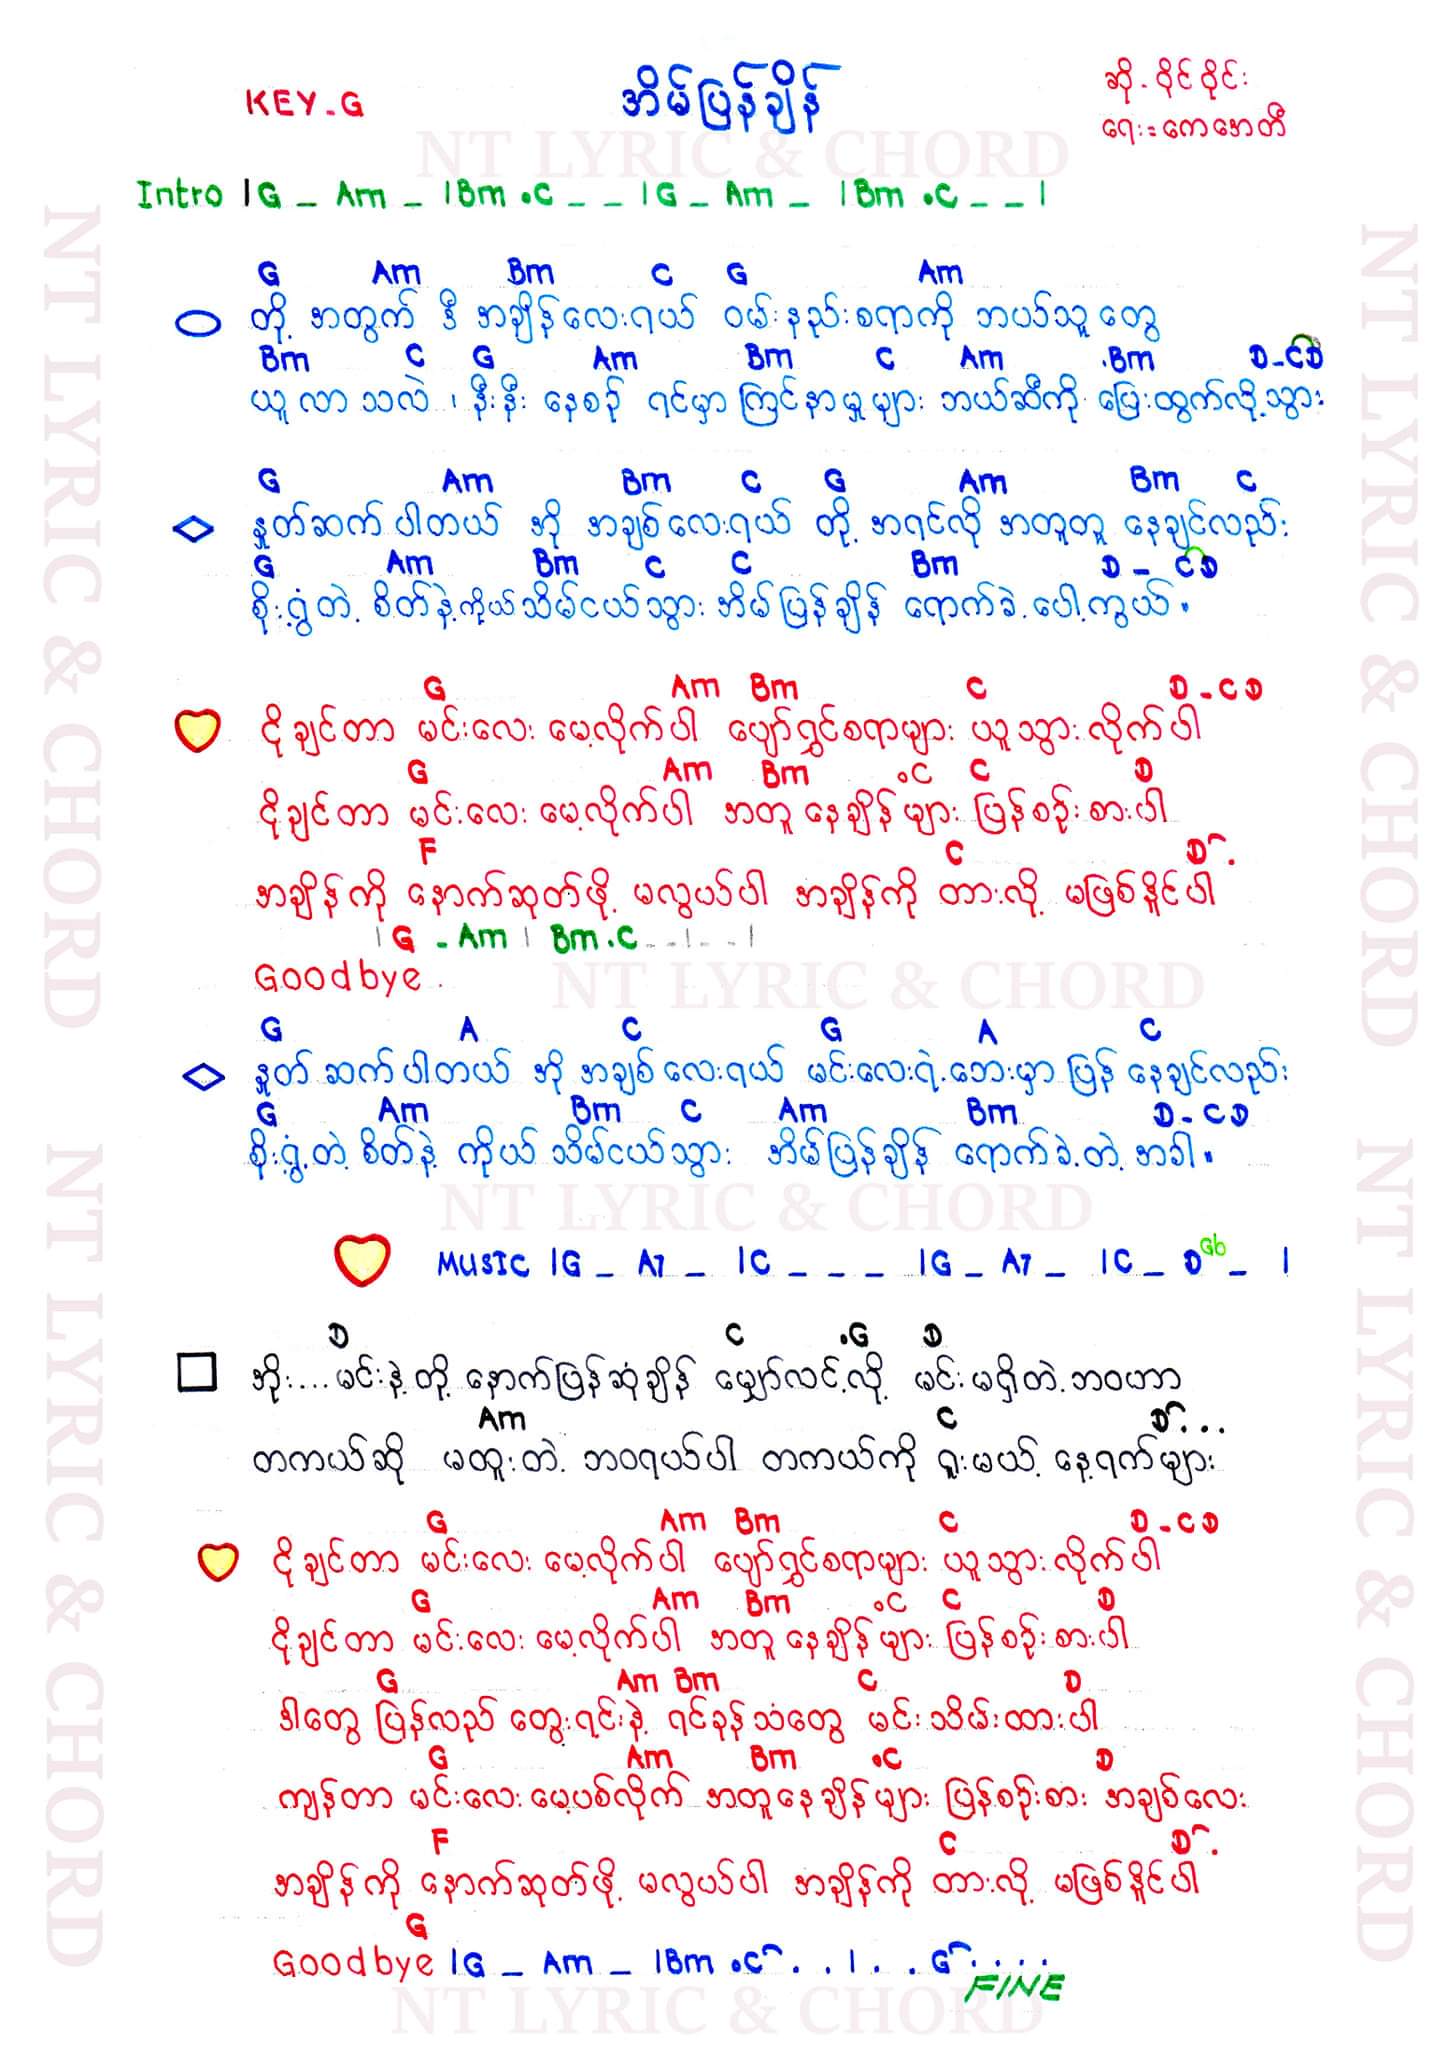 KEY-G
အိမ်ပြန်ချိန်
ဆို - ဝိုင်ဝိုင်း
ရေး = ကေအေတီ
Intro |G _ Am _ |Bm .C _ _ |G _ Am _ |Bm .C _ _ |
G Am Bm C G Am
တို့ အတွက် ဒီ အချိန်လေးရယ် ဝမ်းနည်းစရာကို ဘယ်သူတွေ
Bm C G Am Bm C Am .Bm D-CD
ယူလာသလဲ ၊ နီးနီး နေစဉ် ရင်မှာ ကြင်နာမှုများ ဘယ်ဆီကို ပြေးထွက်လို့သွား
G Am Bm C G Am Bm C
နှုတ်ဆက်ပါတယ် အို အချစ်လေးရယ် တို့ အရင်လို အတူတူ နေချင်လည်း
G Am Bm C C Bm D - CD
စိုးရွံ့တဲ့ စိတ်နဲ့ကိုယ်သိမ်ငယ်သွား အိမ်ပြန်ချိန် ရောက်ခဲ့ပေါ့ကွယ်။
G Am Bm C D-CD
ငိုချင်တာ မင်းလေး မေ့လိုက်ပါ ပျော်ရွှင်စရာများ ယူသွားလိုက်ပါ
G Am Bm °C C D
ငိုချင်တာ မင်းလေး မေ့လိုက်ပါ အတူ နေချိန်များ ပြန်စဉ်းစားပါ
F C D⌒.
အချိန်ကို နောက်ဆုတ်ဖို့ မလွယ်ပါ အချိန်ကို တားလို့ မဖြစ်နိုင်ပါ
|G - Am | Bm.C--|--|
Goodbye.
G A C G A C
နှုတ်ဆက်ပါတယ် အို အချစ်လေးရယ် မင်းလေးရဲ့ဘေးမှာ ပြန် နေချင်လည်း
G Am Bm C Am Bm D-CD
စိုးရွံ့တဲ့ စိတ်နဲ့ ကိုယ် သိမ်ငယ်သွား အိမ်ပြန်ချိန် ရောက်ခဲ့တဲ့အခါ။
MUSIC |G _ A7 _ |C _ _ _ |G _ A7 _ |C _ D Gb _ |
D C .G D
အိုး....မင်းနဲ့တို့ နောက်ပြန်ဆုံချိန် မျှော်လင့်လို့ မင်းမရှိတဲ့ဘဝဟာ
Am C D⌒...
တကယ်ဆို မထူးတဲ့ ဘဝရယ်ပါ တကယ်ကို ရူးမယ့် နေ့ရက်များ
G Am Bm C D-CD
ငိုချင်တာ မင်းလေး မေ့လိုက်ပါ ပျော်ရွှင်စရာများ ယူသွားလိုက်ပါ
G Am Bm °C C D
ငိုချင်တာ မင်းလေး မေ့လိုက်ပါ အတူ နေချိန်များ ပြန်စဉ်းစားပါ
G Am Bm C D
ဒါတွေ ပြန်လည် တွေးရင်းနဲ့ ရင်ခုန်သံတွေ မင်းသိမ်းထားပါ
G Am Bm .C D
ကျန်တာ မင်းလေး မေ့ပစ်လိုက် အတူနေချိန်များ ပြန်စဉ်းစား အချစ်လေး
F C D⌒.
အချိန်ကို နောက်ဆုတ်ဖို့ မလွယ်ပါ အချိန်ကို တားလို့ မဖြစ်နိုင်ပါ
G
Goodbye |G _ Am _ |Bm .C⌒. . | . . G⌒. . . .
FINE
NT LYRIC & CHORD
NT LYRIC & CHORD
NT LYRIC & CHORD
NT LYRIC & CHORD
NT LYRIC & CHORD
NT LYRIC & CHORD
NT LYRIC & CHORD
NT LYRIC & CHORD